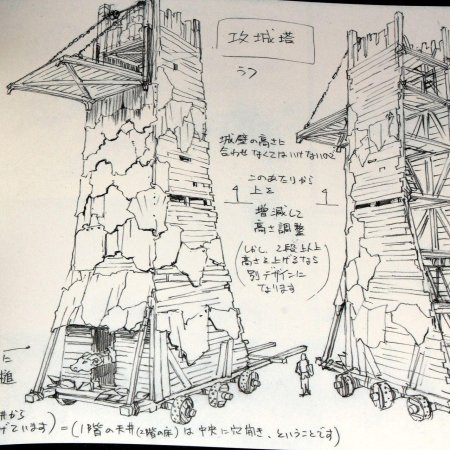 攻城塔
ラフ
城壁の高さに
合わせなくてはいけないので
このあたりから
上を
増減して
高さ調整
(しかし、2段以上
高さを上げるなら
別デザインに
なります)
に
槌
から
げています) = (1階の天井(2階の床)は中央に穴開き、ということです)